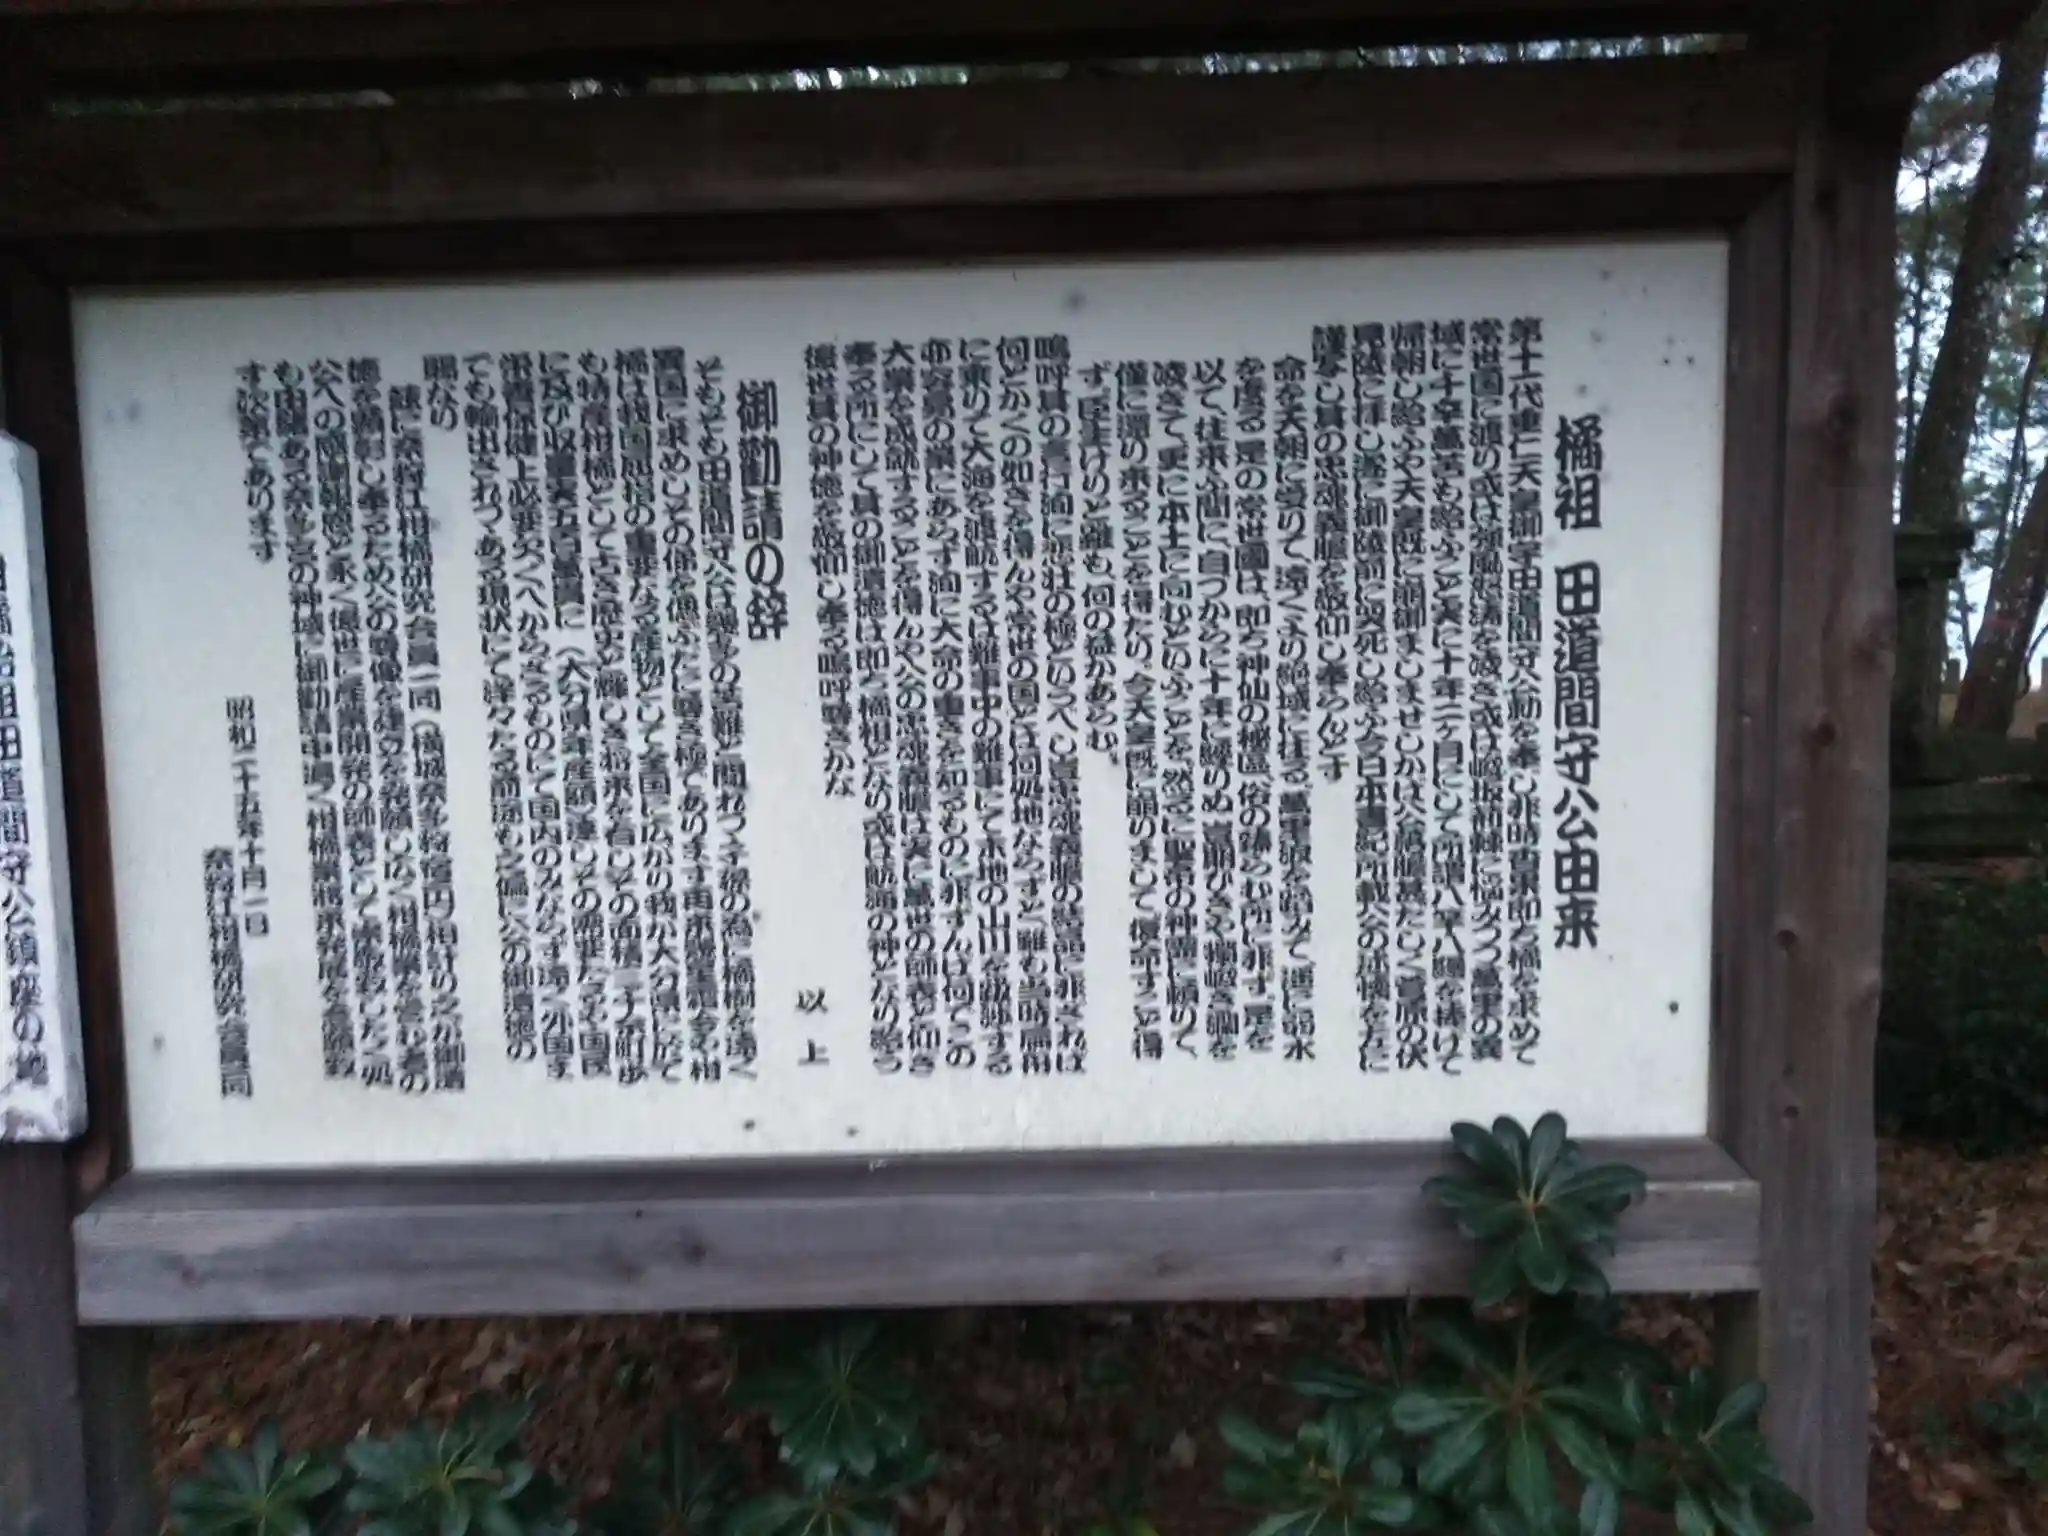 橘祖 田道間守公由来
第十一代垂仁天皇御宇田道間守公勅を奉じ非時香菓即ち橘を求めて
常世国に渡り或は颶風怒濤を凌ぎ或は嶮坂荊棘に悩みつつ萬里の異
域に千辛萬苦し給ふこと実に十年二ヶ月にして所謂八竿八縵を捧げて
帰朝し給ふや天皇既に崩御ましませしかば公落胆甚だしく菅原の伏
見陵に拝し遂に御陵前に哭死し給ふ今日本書紀所載公の述懐を左に
謹写し其の忠魂義胆を敬仰し奉らんとす
命を天朝に受りて、遠くより絶域に往る、萬里浪を踏みて遥に弱水
を度る、是の常世國は、即ち神仙の秘區、俗の臻らむ所に非ず、是を
以て、往来ふ間に自づからに十年に經りぬ、豈期ひきや獨峻き瀾を
凌ぎて、更に本土に向むといふことを、然るに聖帝の神霊に頼りて、
僅に還り来ることを得たり。今天皇既に崩りまして復命すこと得
ず臣生けりと雖も、何の益かあらむ。
嗚呼其の言行洵に悲壮の極といつべし 忠魂義胆の結晶に非ざれば
何とかくの如きを得んや常世の国とは何処地ならずと雖も当時
に東りて大海を渡航するは難事中の難事にて未地の山川を跋渉する
亦容易の業にあらず洵に大命の重きを知るものに非ずんば何ぞこの
大業を成就することを得んや公の忠魂義胆は実に萬世の師表と仰ぎ
奉る所にして其の御遺徳は即ち橘祖となり或は の神となり給う
後世其の神徳を敬仰し奉る嗚呼尊きかな
以上
御勧請の辞
そもそも田道間守公は幾多の苦難と闘れつ子孫の為に橘樹を遠く
異国に求めしその偉を偲ふだに尊き極であります由来 柑
橘は我国屈指の重要なる産物として全国に広がり我が大分県に於て
も特産柑橘として古き歴史と輝しき将来を有しその面積二千余町歩
に及び収量実五百萬貫に(大分県年産額)達しその需要たるや国民
栄養保健上必要欠くべからざるものにて国内のみならず遠く外国ま
でも輸出されつゝある現状にて洋々たる前途も之偏に公の御遺徳の
賜なり
茲に奈狩江柑橘研究会員一同(横城奈多狩宿円)相計り之が御遺
徳を顕彰し奉るため公の尊像を建立を発願し広く柑橘業を営れ者の
公への感謝報恩と永く後世に産業開発の師表として崇敬致したく処
も由緒ある奈多宮の神域に御勧請申上げ柑橘業将来発展を念願致
す次第であります
昭和二十五年十月一日
奈狩江柑橘研究会員一同
田道間守公鎮座の地